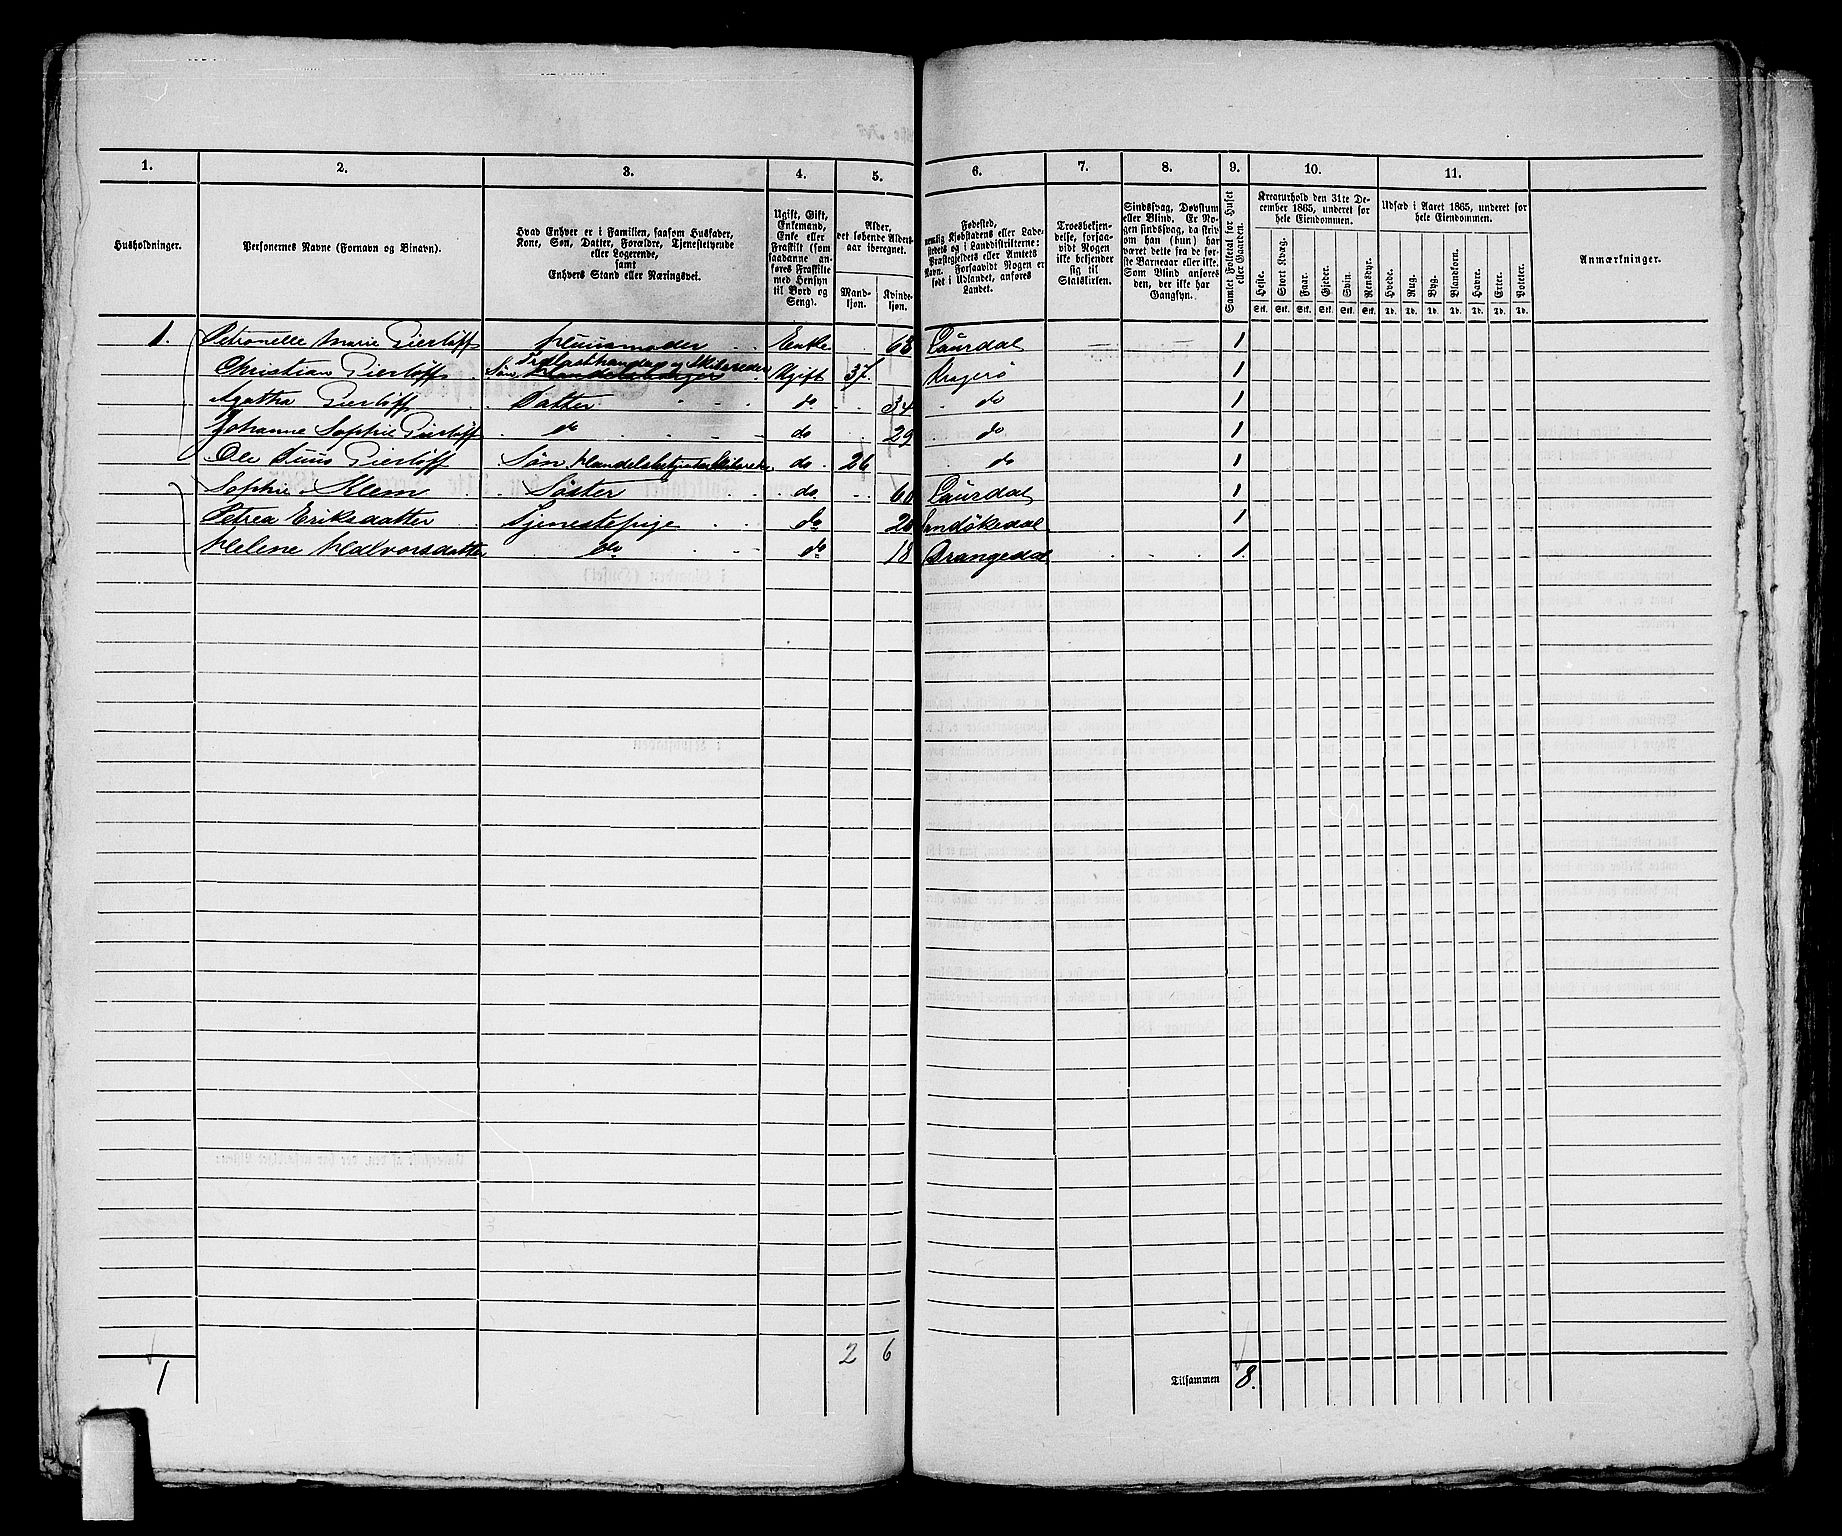 1. 2. 3. 4. 5. 6. 7. 8. 9. 10. 11.
Husholdninger.
Personernes Navne (Fornavn og Binavn).
Hvad Enhver er i Familien, saasom Husfader,
Kone, Søn, Datter, Forældre, Tjenestetyende
eller Logerende,
samt
Enhvers Stand eller Næringsvei.
Ugift, Gift,
Enkemand,
Enke eller
Fraskilt (som
saadanne an-
føres Fraskilte
med Hensyn
til Bord og
Seng).
Alder,
det løbende Alders-
aar iberegnet.
Mand-
kjøn.
Kvinde-
kjøn.
Fødested,
nemlig Kjøbstadens eller Lade-
stedets og i Landdistrikterne:
Præstegjeldets eller Amtets
Navn. Forsaavidt Nogen er
født i Udlandet, anføres
Landet.
Troesbekjen-
delse, forsaa-
vidt Nogen
ikke bekjender
sig til
Statskirken.
Sindssvag, Døvstum
eller Blind. Er No-
gen sindssvag, da skriv
om han (hun) har
været dette fra de før-
ste Barneaar eller ikke.
Som Blind anføres
den, der ikke har
Gangsyn.
Samlet Folketal for Huset
eller Gaarden.
Kreaturhold den 31te De-
cember 1865, underet for
hele Eiendommen.
Heste. Stort Kvæg. Faar. Gjeder. Svin. Rensdyr.
Stk. Stk. Stk. Stk. Stk. Stk.
Udsæd i Aaret 1865, underet for
hele Eiendommen.
Hvede. Rug. Byg. Blandkorn. Havre. Erter. Poteter.
Td. Td. Td. Td. Td. Td. Td.
Anmærkninger.
1. Petronelle Marie Pierløff Huusmoder Enke 63 Laurdal 1
Christian Pierløff Søn Trælasthandler og Skibsreder Ugift 37. Kragerø 1
Agatha Pierløff Datter do 34 do 1
Johanne Sophie Pierløff do do 29 do 1
Ole Tuus Pierløff Søn do 26 do 1
Sophie Klem Søster do 60 Laurdal 1
Petrea Eriksdatter Tjenestepige do 20 Sandøkedal 1
Helene Halvorsdatter do do 18 Drangedal 1.
1 2 6 Tilsammen 8.